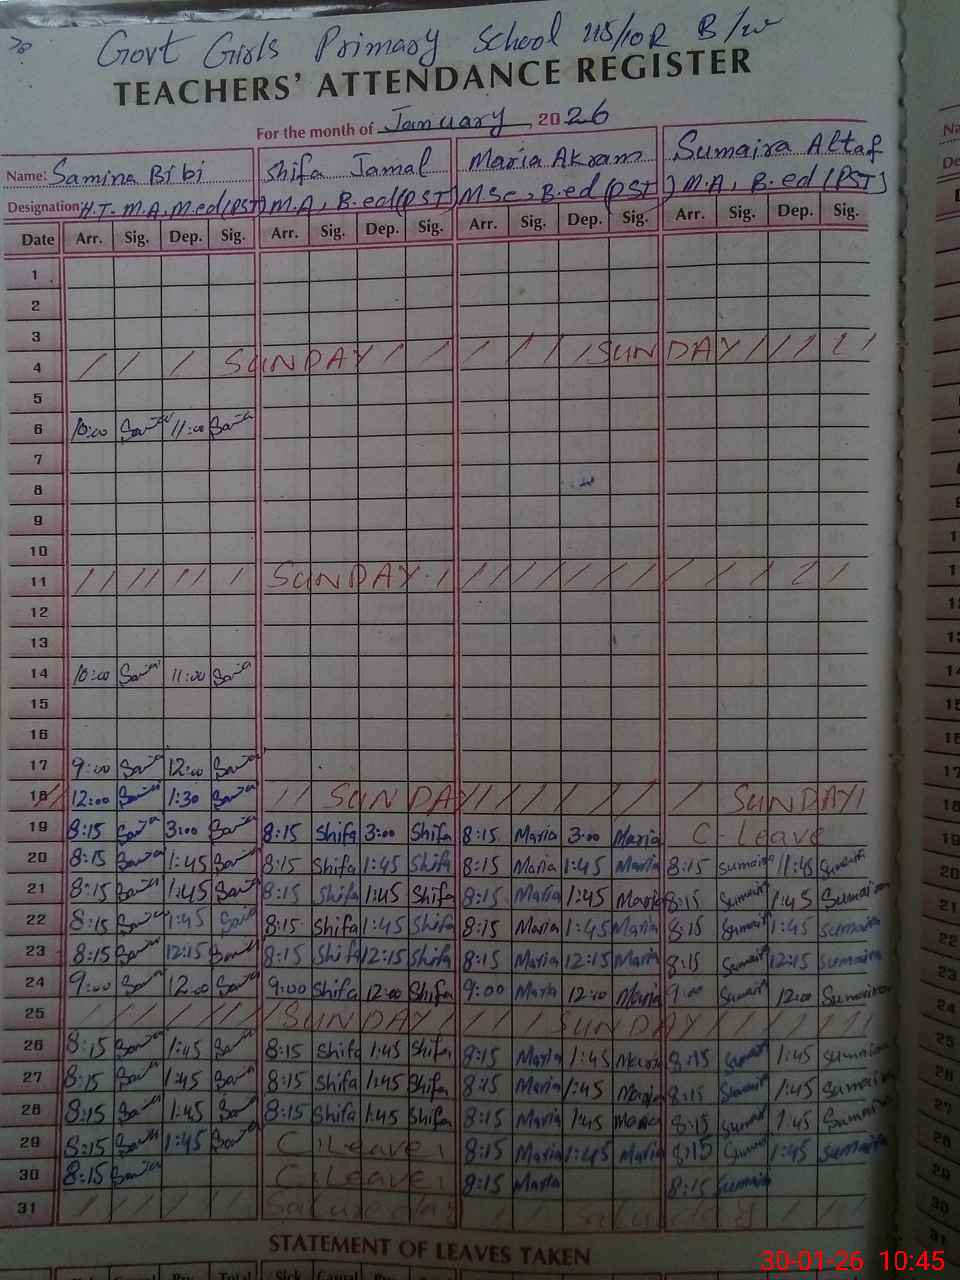 Govt Girls Primary School 115/10R B/w
TEACHERS' ATTENDANCE REGISTER
For the month of January, 2026
Name: Samina Bibi Shifa Jamal Maria Akram Sumaira Altaf
Designation: H.T. M.A, M.ed(PST) M.A, B.ed(PST) MSc, B.ed(PST) M.A, B.ed(PST)
Date Arr. Sig. Dep. Sig. Arr. Sig. Dep. Sig. Arr. Sig. Dep. Sig. Arr. Sig. Dep. Sig.
1
2
3
4 SUNDAY SUNDAY
5
6 10:00 11:00
7
8
9
10
11 SUNDAY
12
13
14 10:00 11:00
15
16
17 9:00 12:00
18 12:00 1:30 SUNDAY SUNDAY
19 8:15 3:00 8:15 Shifa 3:00 Shifa 8:15 Maria 3:00 Maria C. Leave
20 8:15 1:45 8:15 Shifa 1:45 Shifa 8:15 Maria 1:45 Maria 8:15 Sumaira 1:45 Sumaira
21 8:15 1:45 8:15 Shifa 1:45 Shifa 8:15 Maria 1:45 Maria 8:15 Sumaira 1:45 Sumaira
22 8:15 1:45 8:15 Shifa 1:45 Shifa 8:15 Maria 1:45 Maria 8:15 Sumaira 1:45 Sumaira
23 8:15 12:15 8:15 Shifa 12:15 Shifa 8:15 Maria 12:15 Maria 8:15 Sumaira 12:15 Sumaira
24 9:00 12:00 9:00 Shifa 12:00 Shifa 9:00 Maria 12:00 Maria 9:00 Sumaira 12:00 Sumaira
25 SUNDAY SUNDAY
26 8:15 1:45 8:15 Shifa 1:45 Shifa 8:15 Maria 1:45 Maria 8:15 Sumaira 1:45 Sumaira
27 8:15 1:45 8:15 Shifa 1:45 Shifa 8:15 Maria 1:45 Maria 8:15 Sumaira 1:45 Sumaira
28 8:15 1:45 8:15 Shifa 1:45 Shifa 8:15 Maria 1:45 Maria 8:15 Sumaira 1:45 Sumaira
29 8:15 1:45 C. Leave 8:15 Maria 1:45 Maria 8:15 Sumaira 1:45 Sumaira
30 8:15 C. Leave 8:15 Maria 8:15 Sumaira
31 Satureday Saturday
STATEMENT OF LEAVES TAKEN
30-01-26 10:45